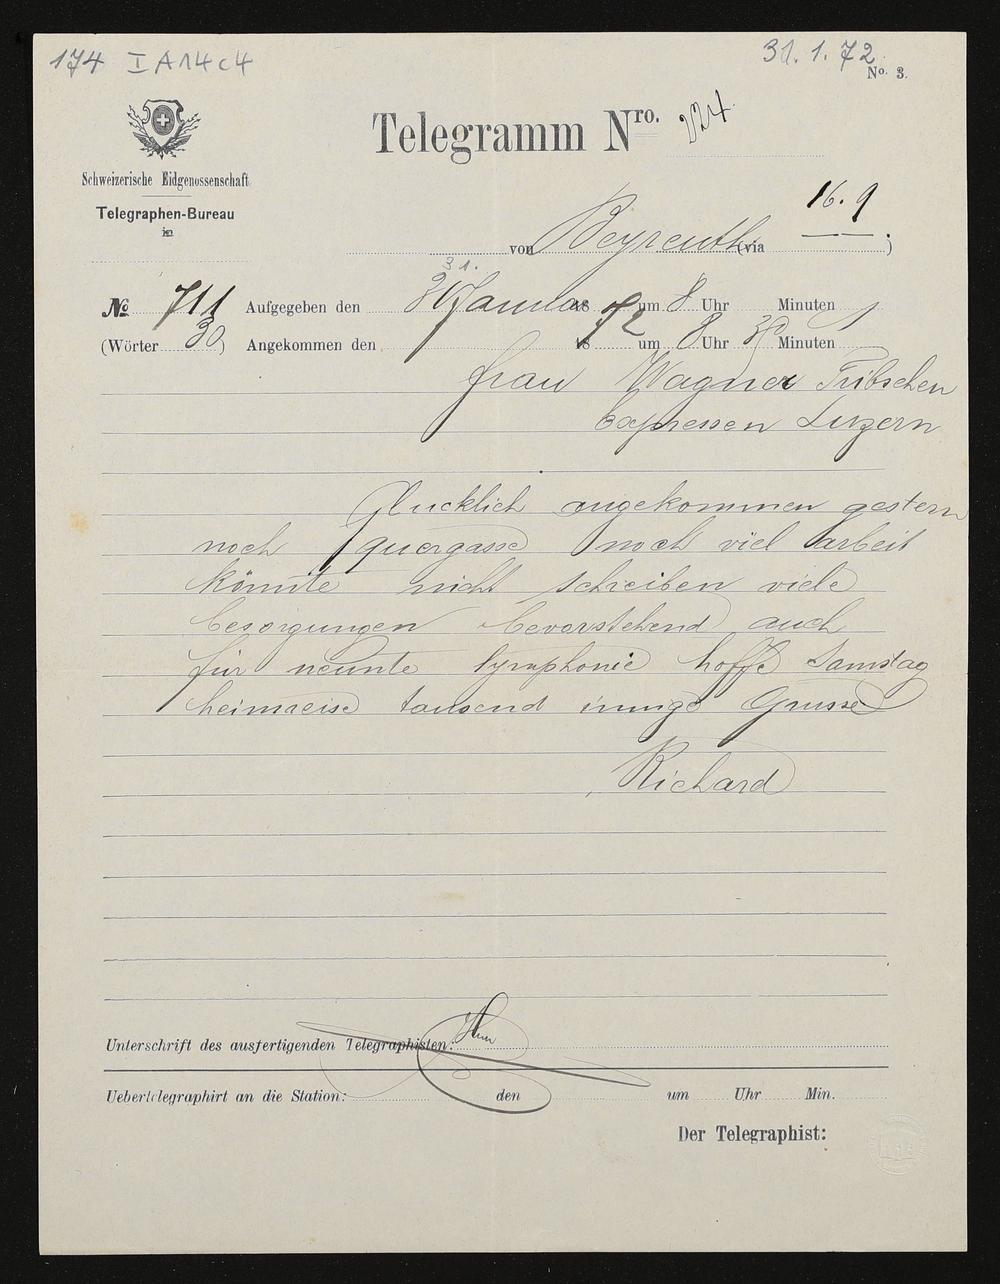 174 I A 14 c 4
31. 1. 72.
No. 3.
Telegramm Nro. 224.
Schweizerische Eidgenossenschaft
Telegraphen-Bureau
in
von Beyreuth (via 16.9 )
31.
No 711 Aufgegeben den Januar 18 72 um 8 Uhr Minuten
(Wörter 30) Angekommen den 18 um 8 Uhr 30 Minuten
Frau Wagner Tribschen
expressen Luzern
Glucklich angekommen gestern
noch quergasse noch viel arbeit
könnte nicht schreiben viele
besorgungen bevorstehend auch
für neunte symphonie hoffe Samstag
heimreise tausend innige Grusse
Richard
Unterschrift des ausfertigenden Telegraphisten:
Uebertelegraphirt an die Station: den um Uhr Min.
Der Telegraphist: